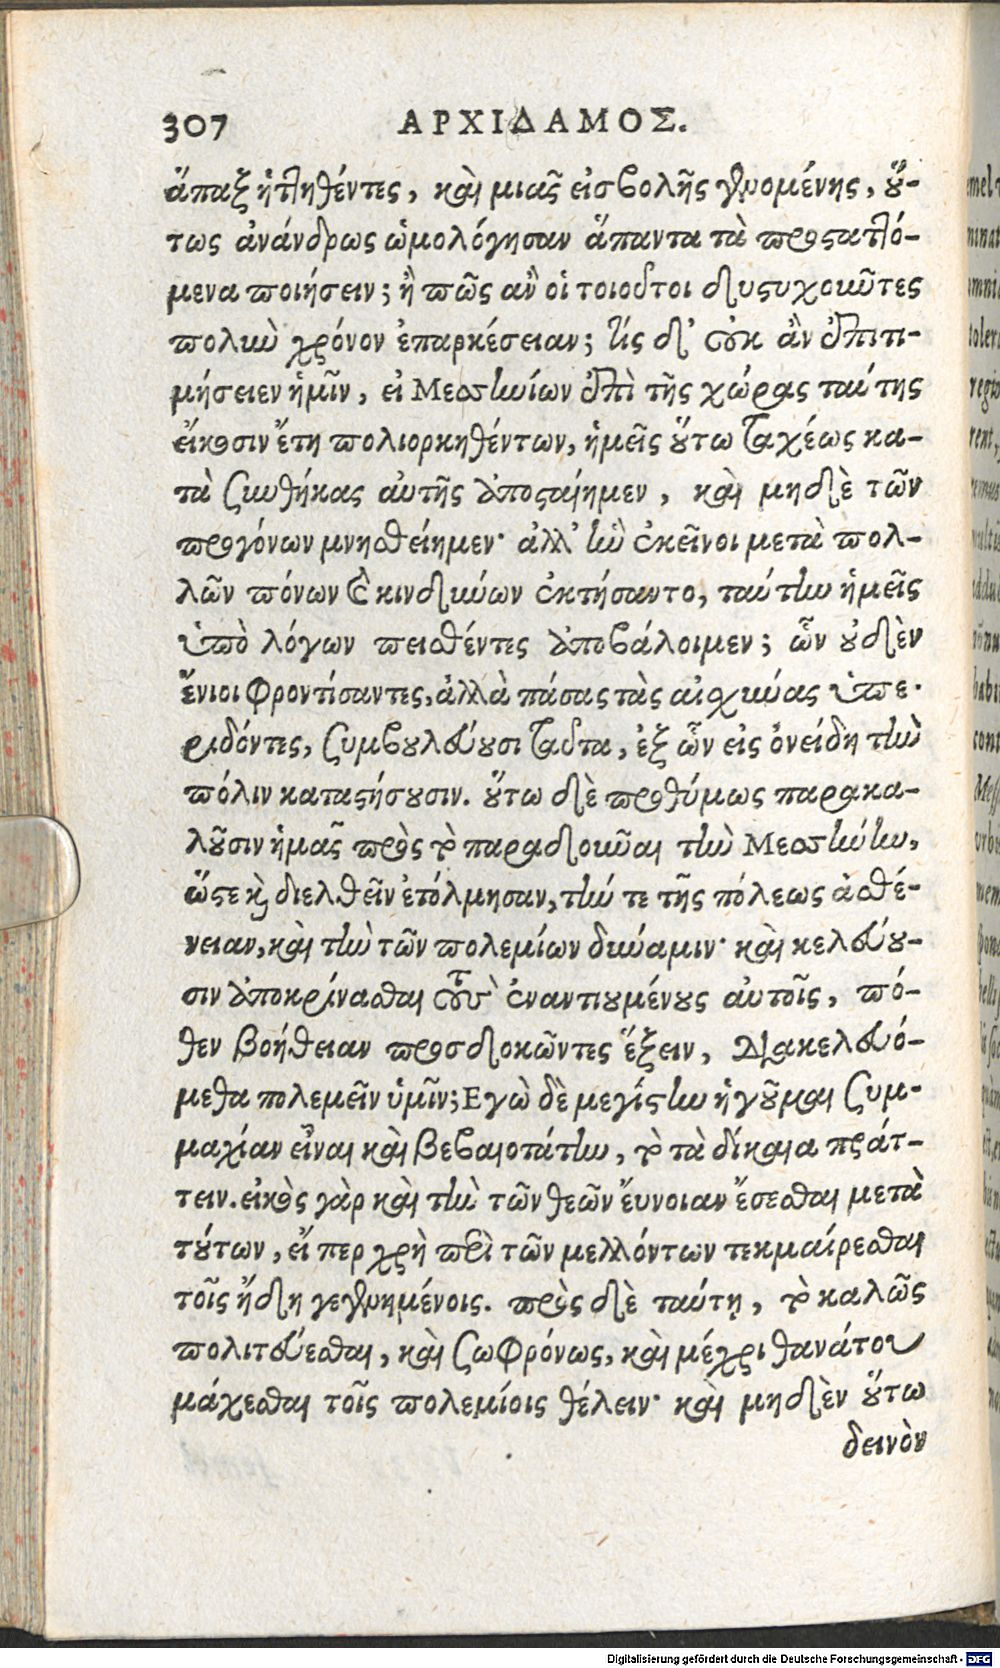 307 ΑΡΧΙΔΑΜΟΣ.
ἅπαξ ἡττηθέντες, καὶ μιᾶς εἰσβολῆς γενομένης, οὕ-
τως ἀνάνδρως ὡμολόγησαν ἅπαντα τὰ προσταττό-
μενα ποιήσειν; ἢ πῶς ἂν οἱ τοιοῦτοι δυστυχοῦντες
πολὺν χρόνον ἐπαρκέσειαν; τίς δ' οὐκ ἂν ἐπιτι-
μήσειεν ἡμῖν, εἰ Μεσσηνίων ἐπὶ τῆς χώρας ταύτης
εἴκοσιν ἔτη πολιορκηθέντων, ἡμεῖς οὕτω ταχέως κα-
τὰ συνθήκας αὐτῆς ἀποσταίημεν, καὶ μηδὲ τῶν
προγόνων μνησθείημεν· ἀλλ' ἣν ἐκεῖνοι μετὰ πολ-
λῶν πόνων καὶ κινδύνων ἐκτήσαντο, ταύτην ἡμεῖς
ὑπὸ λόγων πεισθέντες ἀποβάλοιμεν; ὧν οὐδὲν
ἔνιοι φροντίσαντες, ἀλλὰ πάσας τὰς αἰσχύνας ὑπε-
ριδόντες, συμβουλεύουσι ταῦτα, ἐξ ὧν εἰς ὀνείδη τὴν
πόλιν καταστήσουσιν. οὕτω δὲ προθύμως παρακα-
λοῦσιν ἡμᾶς πρὸς τὸ παραδοῦναι τὴν Μεσσήνην,
ὥστε καὶ διελθεῖν ἐτόλμησαν, τήν τε τῆς πόλεως ἀσθέ-
νειαν, καὶ τὴν τῶν πολεμίων δύναμιν· καὶ κελεύου-
σιν ἀποκρίνασθαι τοὺς ἐναντιουμένους αὐτοῖς, πό-
θεν βοήθειαν προσδοκῶντες ἕξειν, διακελευό-
μεθα πολεμεῖν ὑμῖν; Εγὼ δὲ μεγίστην ἡγοῦμαι συμ-
μαχίαν εἶναι καὶ βεβαιοτάτην, τὸ τὰ δίκαια πράτ-
τειν. εἰκὸς γὰρ καὶ τὴν τῶν θεῶν εὔνοιαν ἔσεσθαι μετὰ
τούτων, εἴ περ χρὴ περὶ τῶν μελλόντων τεκμαίρεσθαι
τοῖς ἤδη γεγενημένοις. πρὸς δὲ ταύτῃ, τὸ καλῶς
πολιτεύεσθαι, καὶ σωφρόνως, καὶ μέχρι θανάτου
μάχεσθαι τοῖς πολεμίοις θέλειν· καὶ μηδὲν οὕτω
δεινὸν
Digitalisierung gefördert durch die Deutsche Forschungsgemeinschaft - DFG